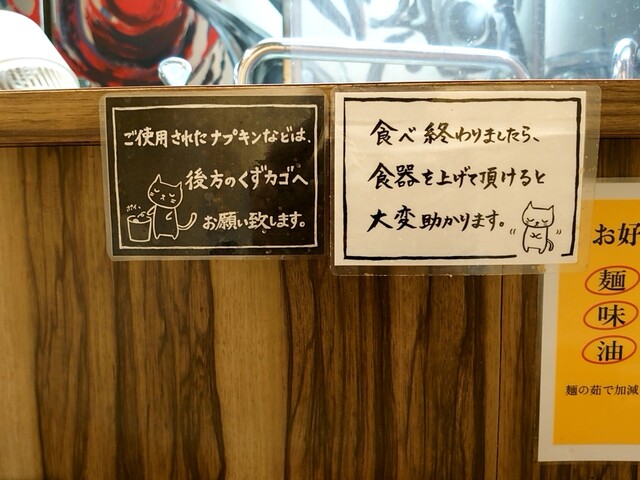 ご使用されたナプキンなどは、
後方のくずカゴへ
ポイ。
お願い致します。
食べ終わりましたら、
食器を上げて頂けると
大変助かります。
お好
麺
味
油
麺の茹で加減